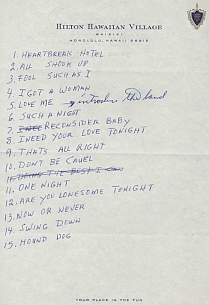 HILTON HAWAIIAN VILLAGE
WAIKIKI
HONOLULU, HAWAII 96815
1. HEARTBREAK HOTEL
2. ALL SHOOK UP
3. FOOL SUCH AS I
4. I GOT A WOMAN
5. LOVE ME introduce the band
6. SUCH A NIGHT
7. I NEED RECONSIDER BABY
8. I NEED YOUR LOVE TONIGHT
9. THATS ALL RIGHT
10. DON'T BE CRUEL
10. DOING THE BEST I CAN
11. ONE NIGHT
12. ARE YOU LONESOME TONIGHT
13. NOW OR NEVER
14. SWING DOWN
15. HOUND DOG
YOUR PLACE IN THE FUN